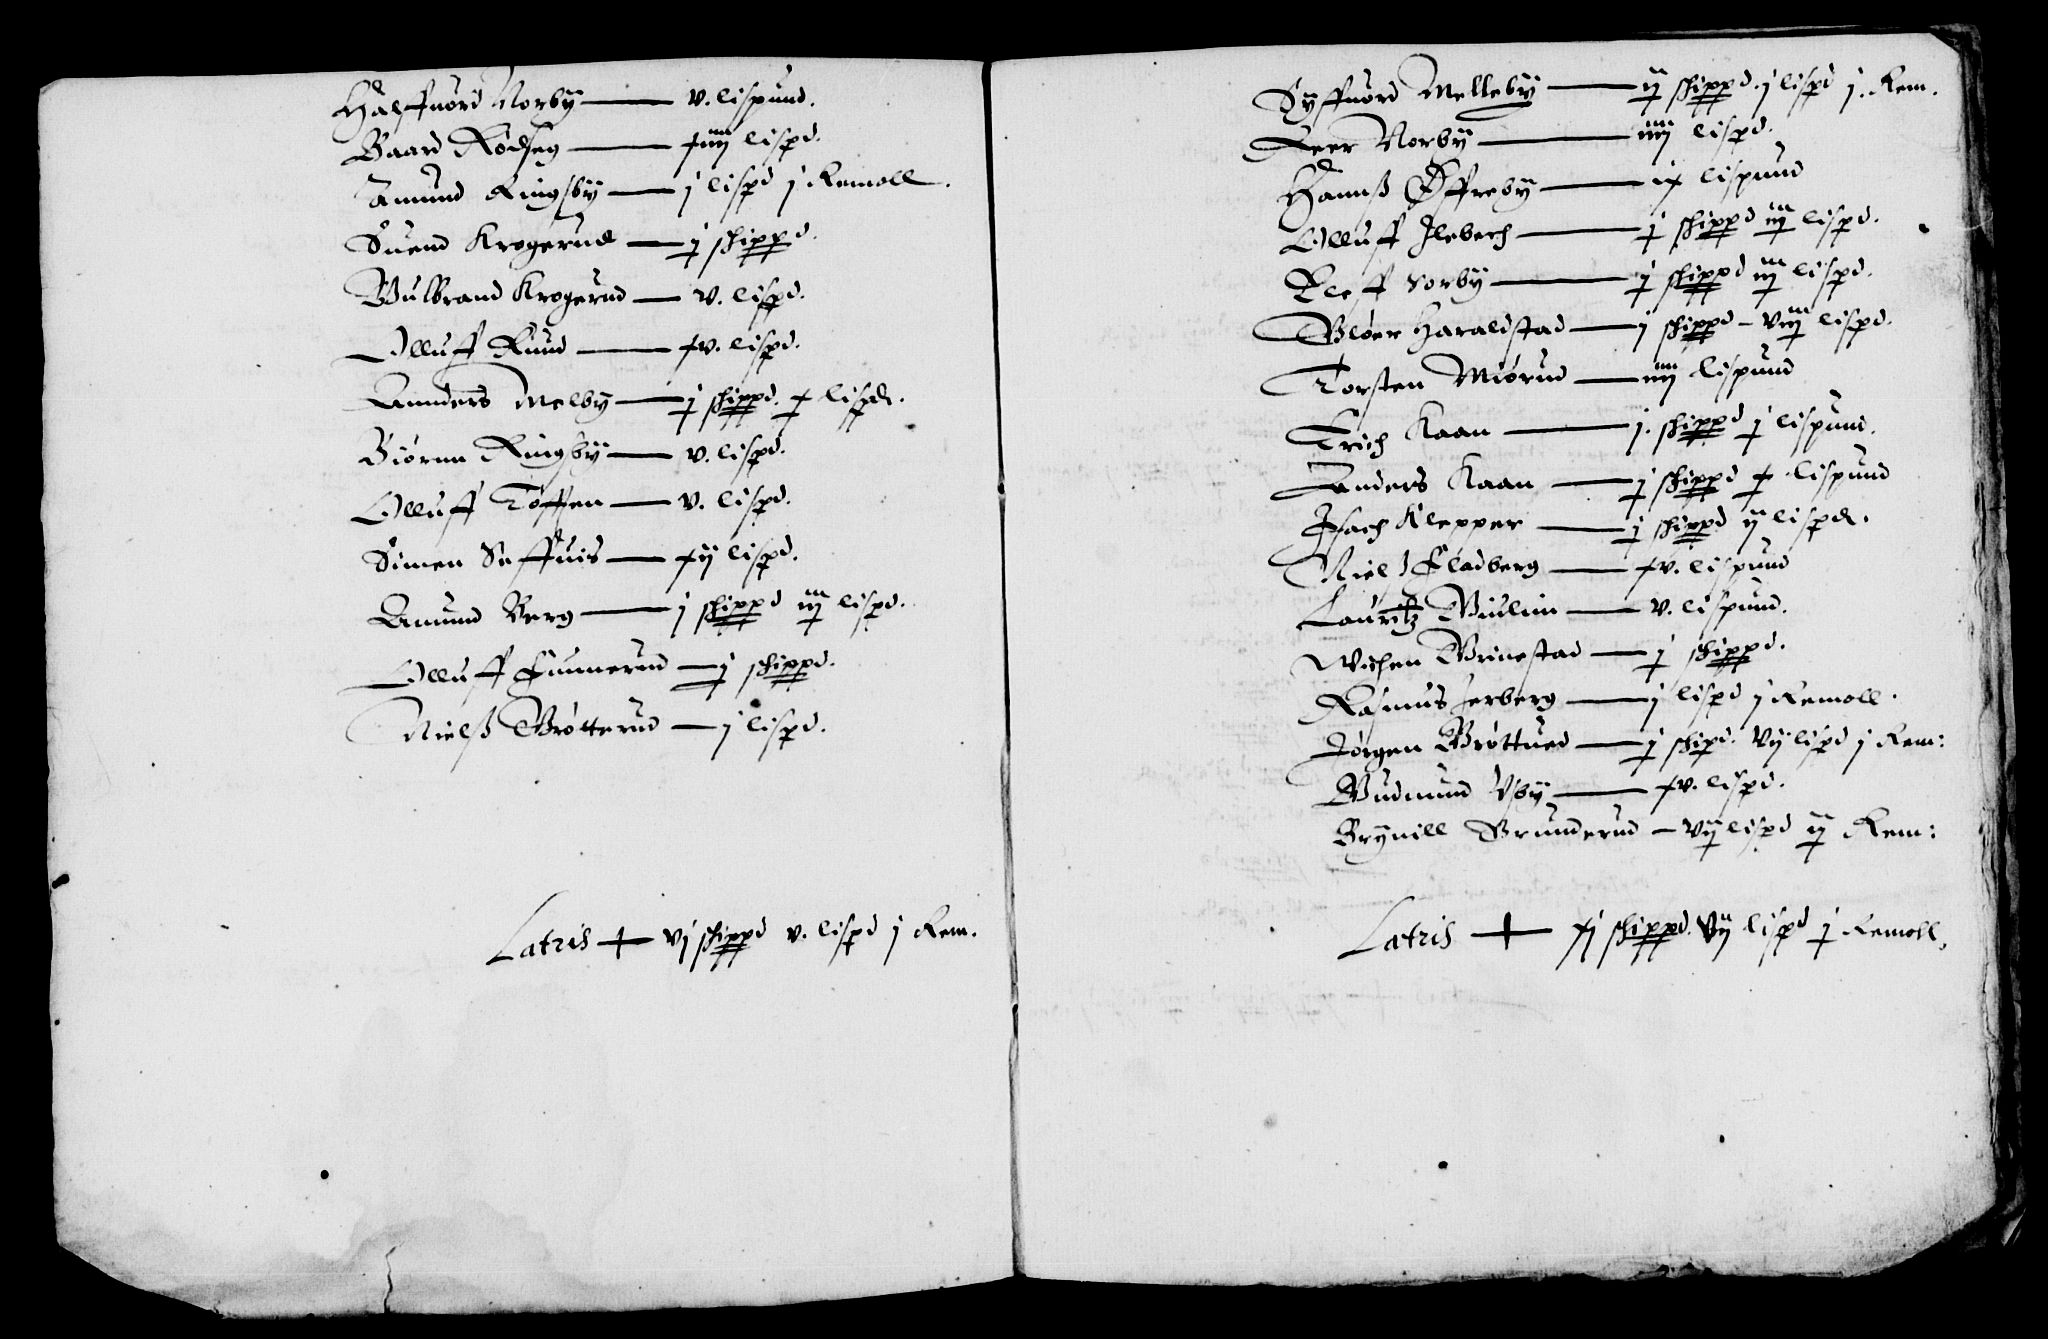 Halffuord Norby — v. lispund.
Baard Rødseg — xiiij lispd.
Amund Ringsby — j lispd j Remoll.
Suend Krogerud — j shippd.
Gulbrand Krogerud — v. lispd.
Olluff Ruud — xv. lispd.
Anders Melby — j shippd. x lispd.
Biørnn Ringsby — v. lispd.
Olluff Toffen — v. lispd.
Simen — xij lispd.
Amund Berg — j shippd iiij lispd.
Olluff Funnerud — j shippd.
Nielß Brøtterud — j lispd.
Latris + vj shippd v. lispd j Rem.
Syffuord Melleby — ij shippd. j lispd j. Rem.
Peer Norby — iiij lispd.
Hannß Øffreby — ix lispund
Olluff Ilebech — j shippd iiij lispd.
Leff Norby — j shippd iiij lispd.
Gløer Haraldstad — j shippd – viij lispd.
Torsten Miørud — iiij lispund
Erich Kaan — j. shippd j lispund.
Anders Kaan — j shippd x lispund
Isach Klepper — j shippd ij lispd.
Niels Fladberg — xv. lispund
Lauritz Giulim — v. lispund.
Wichen Grinestad — j shippd.
Rasmus Jerberg — j lispd j Remoll.
Jørgen Brøttued — j shipd. vij lispd j Rem:
Gudmund Vsby — xv. lispd.
Brynill Grunderud – vij lispd ij Rem:
Latris + xj shippd. vij lispd j Remoll.